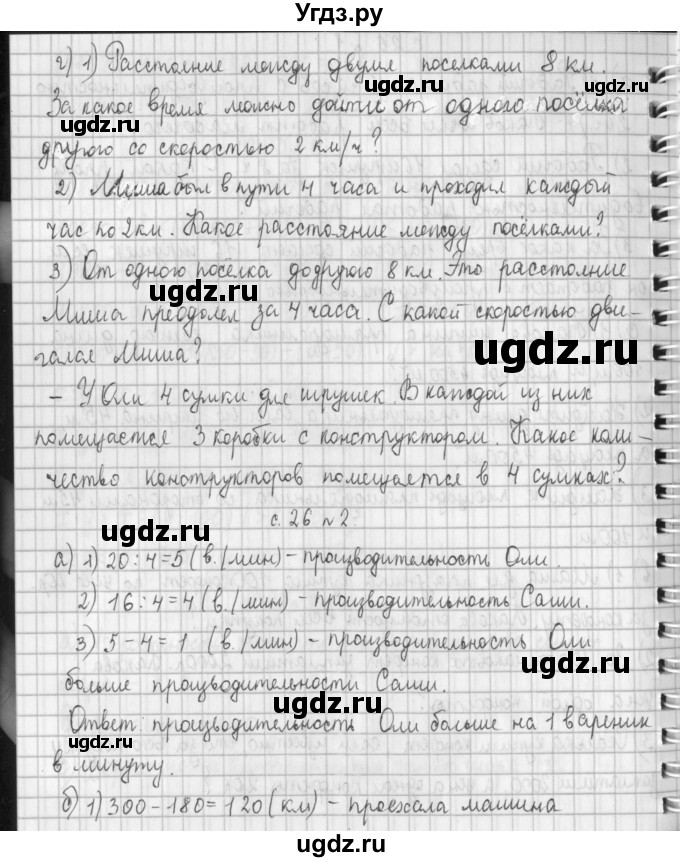 Угдз.ру
г) 1) Расстояние между двумя поселками 8 км.
За какое время можно дойти от одного посёлка
другого со скоростью 2 км/ч?
2) Миша был в пути 4 часа и проходил каждый
час по 2 км. Какое расстояние между посёлками?
3) От одного посёлка до другого 8 км. Это расстояние
Миша преодолел за 4 часа. С какой скоростью дви-
гался Миша?
- У Оли 4 сумки для игрушек. В каждой из них
помещается 3 коробки с конструктором. Какое коли-
чество конструкторов помещается в 4 сумках?
с. 26 №2
а) 1) 20:4=5 (в./мин) - производительность Оли.
2) 16:4=4 (в./мин) - производительность Саши.
3) 5-4=1 (в./мин) - производительность Оли
больше производительности Саши.
Ответ: производительность Оли больше на 1 вареник
в минуту.
б) 1) 300-180=120 (км) - проехала машина
ugdz.ru
ugdz.ru
ugdz.ru
ugdz.ru
ugdz.ru
ugdz.ru
ugdz.ru
ugdz.ru
ugdz.ru
ugdz.ru
ugdz.ru